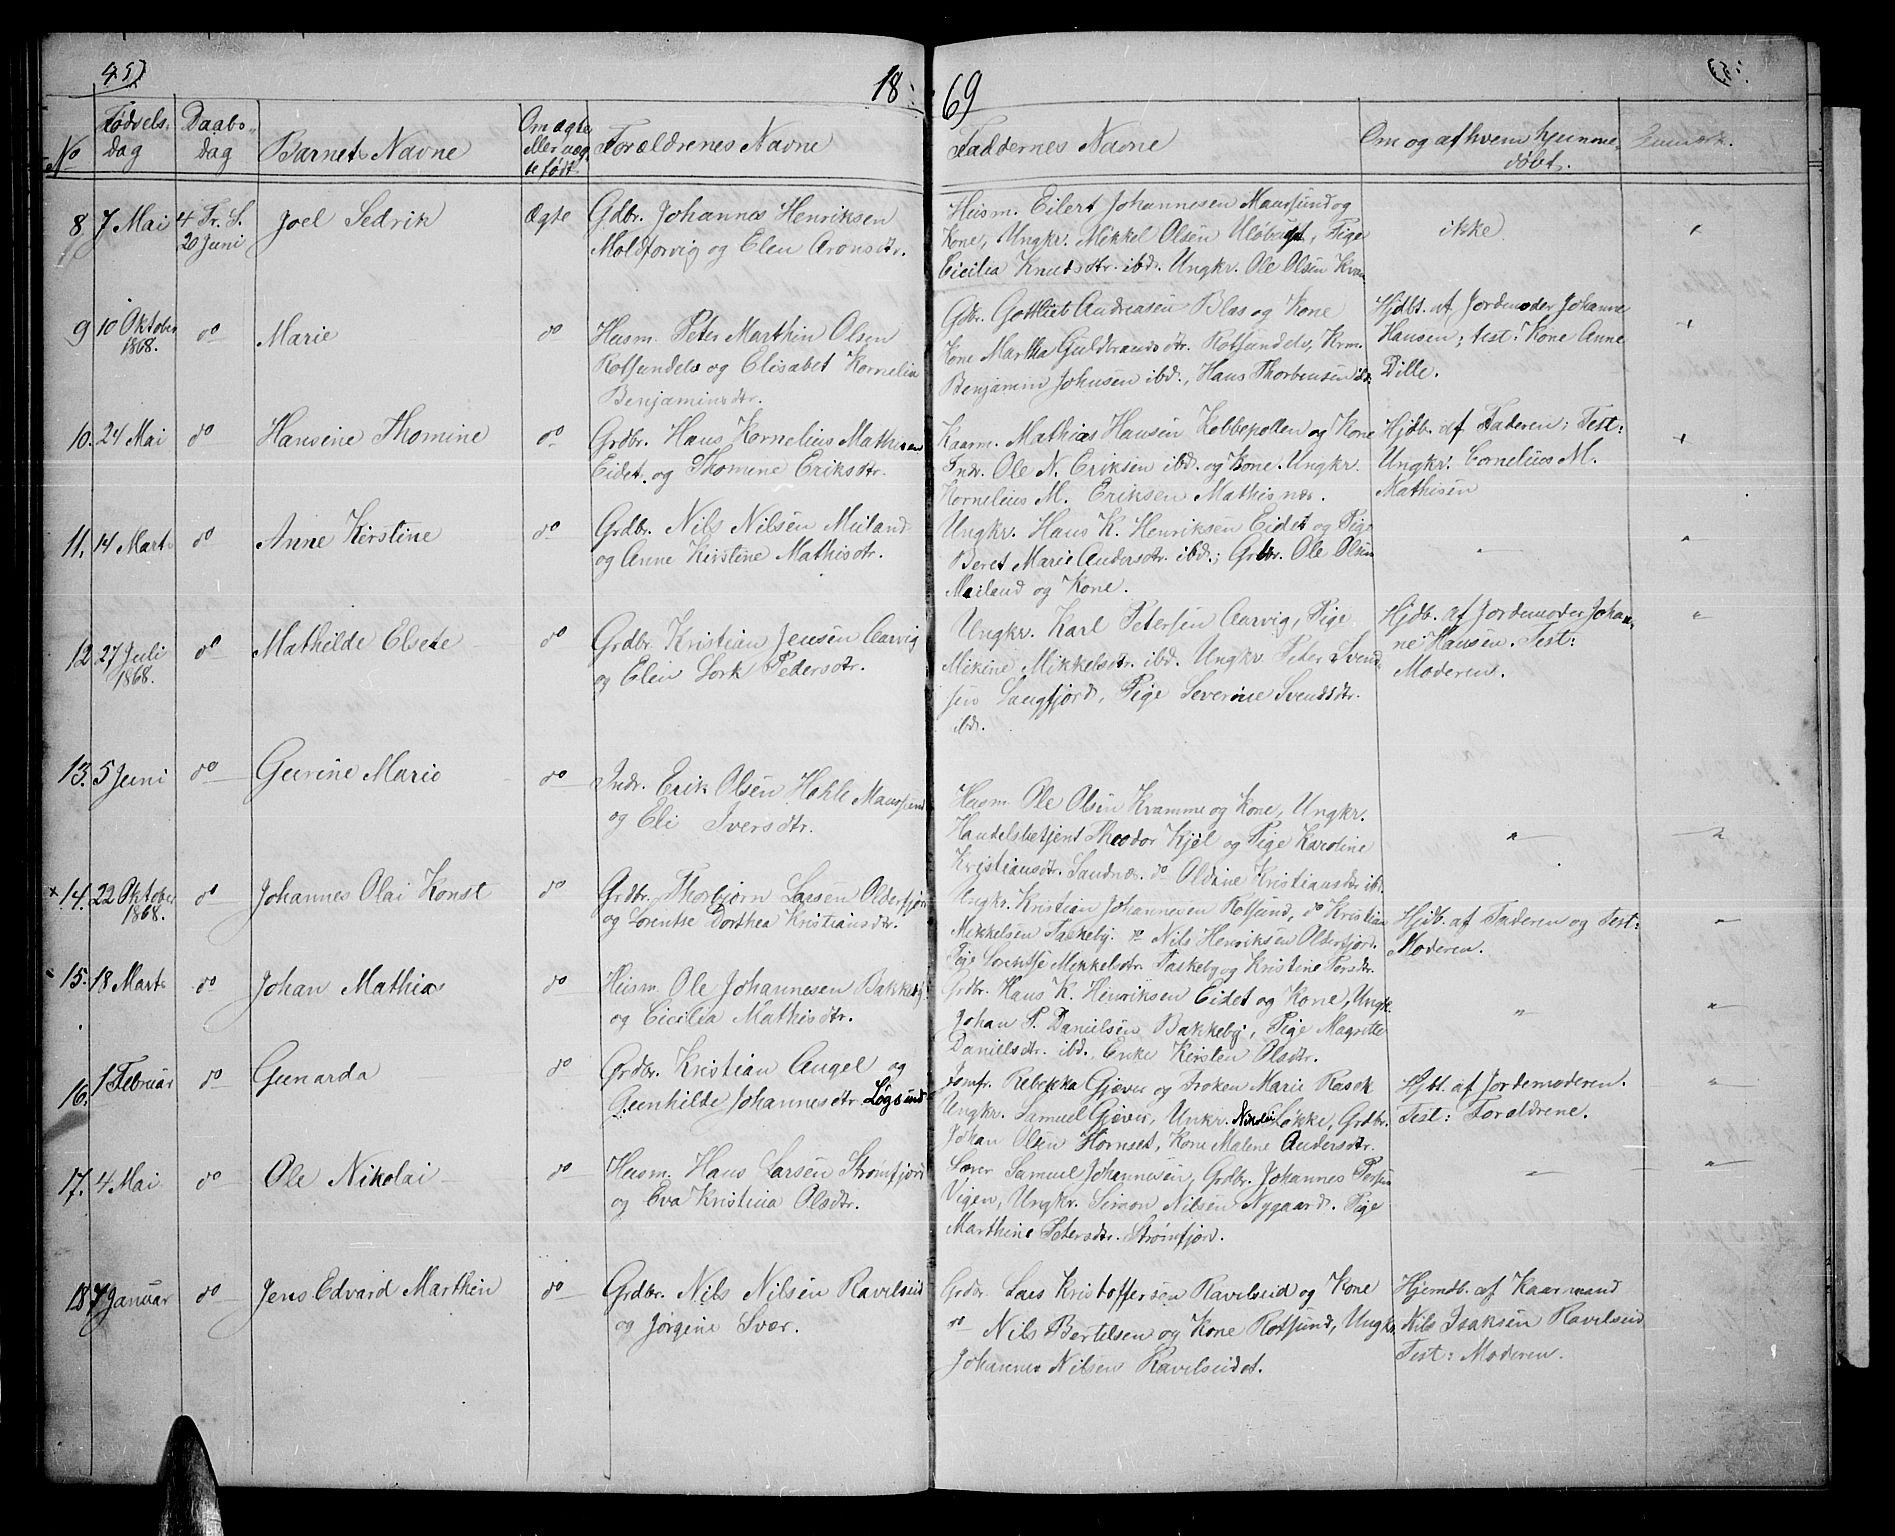 45)
18
69
No
Fødsels-
dag
Daabs-
dag
Barnets Navne
Om ægte
eller uæg
te født
Forældrenes Navne
Faddernes Navne
Om og af hvem hjemme
døbt.
8
7 Mai
4 Tr. S.
20 Juni
Joel Sedrik
Ægte
Gdbr. Johannes Henriksen
Moldforvig og Elen Aronsdtr.
Husm. Eilert Johannesen Maursund og
Kone, Ungkr. Mikkel Olsen Uløbugt, Pige
Cicilia Knudsdtr. ibd. Ungkr. Ole Olsen
ikke
9
10 Oktober
1868.
do
Marie
do
Husm. Peter Marthin Olsen
Rotsundelv og Elisabet Kornelia
Benjaminsdtr.
Gdbr. Gottlieb Andreasen Blas og Kone
Kone Martha Guldbrandsdtr. Rotsundelv,
Benjamin Johnsen ibd., Hans Thorbensen ibd.
Hjdbt. af Jordemoder Johanne
Hansen; test: Kone Anne
Dille.
10.
24 Mai
do
Hansine Thomine
do
Grdbr. Hans Kornelius Mathisen
Eidet og Thomine Eriksdtr.
Kaarm. Mathias Hansen Kobbepollen og Kone
Indr. Ole N. Eriksen ibd. og Kone. Ungkr.
Kornelius M. Eriksen
Hjdb. af Faderen; Test:
Ungkr. Cornelius M.
Mathisen
11.
14 Marts
do
Anne Kirstine
do
Grdbr. Nils Nilsen Meiland
og Anne Kirstine Mathisdtr.
Ungkr. Hans K. Henriksen Eidet og Pige
Beret Marie Andersdtr. ibd.; Grdbr. Ole Olsen
Meiland og Kone.
12
27 Juli
1868.
do
Mathilde Elsete
do
Grdbr. Kristian Jensen Aarvig
og Elen Lork Pedersdtr.
Ungkr. Karl Petersen Aarvig, Pige
Mikine Mikkelsdtr. ibd. Ungkr. Peter Svend
sen Langfjord, Pige Severine Svendsdtr.
ibd.
Hjdb. af Jordemoder Johan-
ne Hansen. Test:
Moderen.
13.
5 Juni
do
Gurine Marie
do
Indr. Erik Olsen Hohle Maursund
og Eli Iversdtr.
Husm. Ole Olsen Kramme og Kone, Ungkr.
Handelsbetjent Theodor Kjel og Pige Karoline
Kristiansdtr. Sandnæs. do Oldine Kristiansdtr ibd.
× 14.
22 Oktober
1868.
do
Johannes Olai Konst
do
Grdbr. Thorbjørn Larsen Olderfjord
og Lorentse Dorthea Kristiansdtr.
Ungkr. Kristian Johannesen Rotsund, do Kristian
Mikkelsen Taskeby. do Nils Henriksen Olderfjord.
Pige Lorentse Mikkelsdtr. Taskeby og Kristine Persdtr.
Hjdb. af Faderen og Test:
Moderen.
15.
18 Marts
do
Johan Mathias
do
Husm. Ole Johannesen Bakkeby
og Cicilia Mathisdtr.
Grdbr. Hans K. Henriksen Eidet og Kone, Ungk.
Johan P. Danielsen Bakkeby, Pige Magrette
Danielsdtr. ibd., Enke Kirsten Olsdtr.
16.
1 Februar
do
Gunarda
do
Grdbr. Kristian Angel og
Gunhilde Johannesdtr. Løgsund
Jomfr. Rebekka Gjæver og Frøken Marie Rasch
Ungkr. Samuel Gjæver, Unkr. Nikolai Løkke, Grdbr.
Johan Olsen Hornset, Kone Malene Andersdtr.
Hjbt. af Jordemoderen.
Test: Forældrene.
17.
4 Mai
do
Ole Nikolai
do
Husm. Hans Larsen Strømfjord
og Eva Kristina Olsdtr.
Samuel Johannesen, Grdbr. Johannes Persen
Vigen, Ungkr. Simon Nilsen Nygaard. Pige
Marthine Petersdtr. Strømfjord.
18
7 Januar
do
Jens Edvard Marthin
do
Grdbr. Nils Nilsen Ravelseid
og Jørgine Ivær.
Grdbr. Lars Kristoffersen Ravelseid og Kone
do Nils Bertelsen og Kone Rotsund, Ungkr.
Johannes Nilsen Ravelseidet.
Hjemdb. af Kaarmand
Nils Isaksen Ravelseid
Test: Moderen.